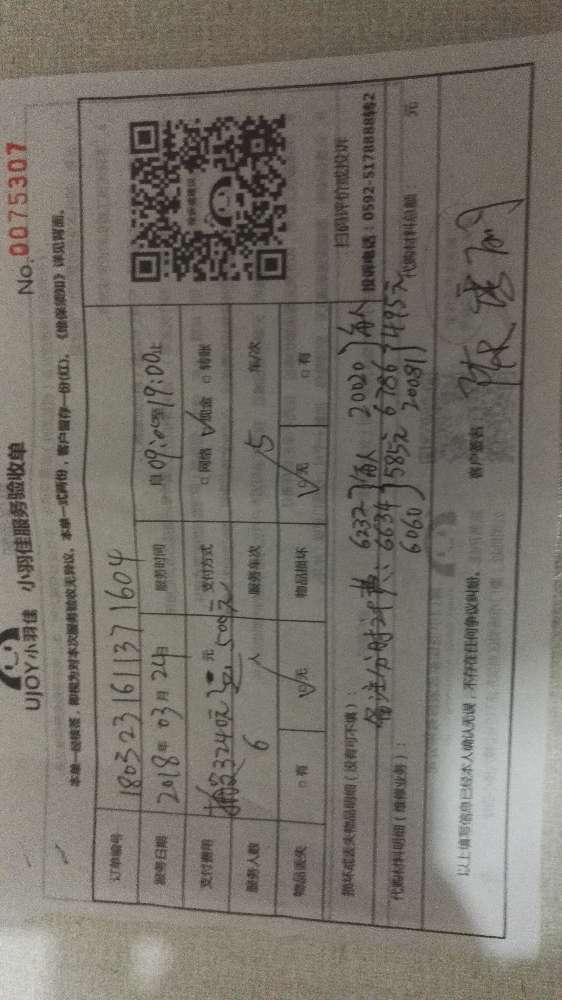 UJOY小羽佳 小羽佳服务验收单 No.0075307
本单一经核签，即视为对本次服务验收无异议。本单一式两份，客户留存一份(红)。《维保须知》详见背面。
订单编号 180323161137 1604
服务日期 2018年03月24日 服务时间 自09:00至19:00止
支付费用 3240元 元 500元 支付方式 □网络 √现金 □转账
服务人数 6人 服务车次 5 车/次
物品丢失 □有 √无 物品损坏 √无 □有
扫码评价或投诉
投诉电话：0592-5178888转2
损坏或丢失物品明细（没有可不填）：
备注分时计费： 6232 6634 6060 每人585元 20020 6786 20081 每人495元
代购材料明细（维修业务）： 代购材料总额 元
以上填写信息已经本人确认无误，不存在任何争议纠纷。 客户签名